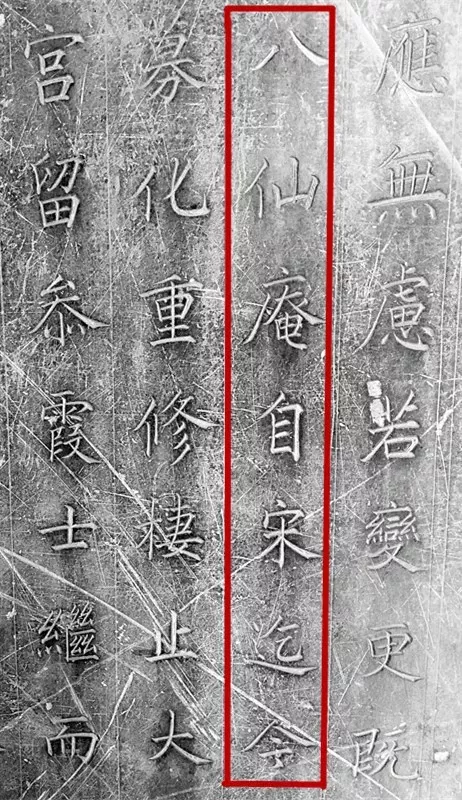 應無慮若變更既
八仙庵自宋迄今
募化重修棲止大
宮留叅霞士繼而